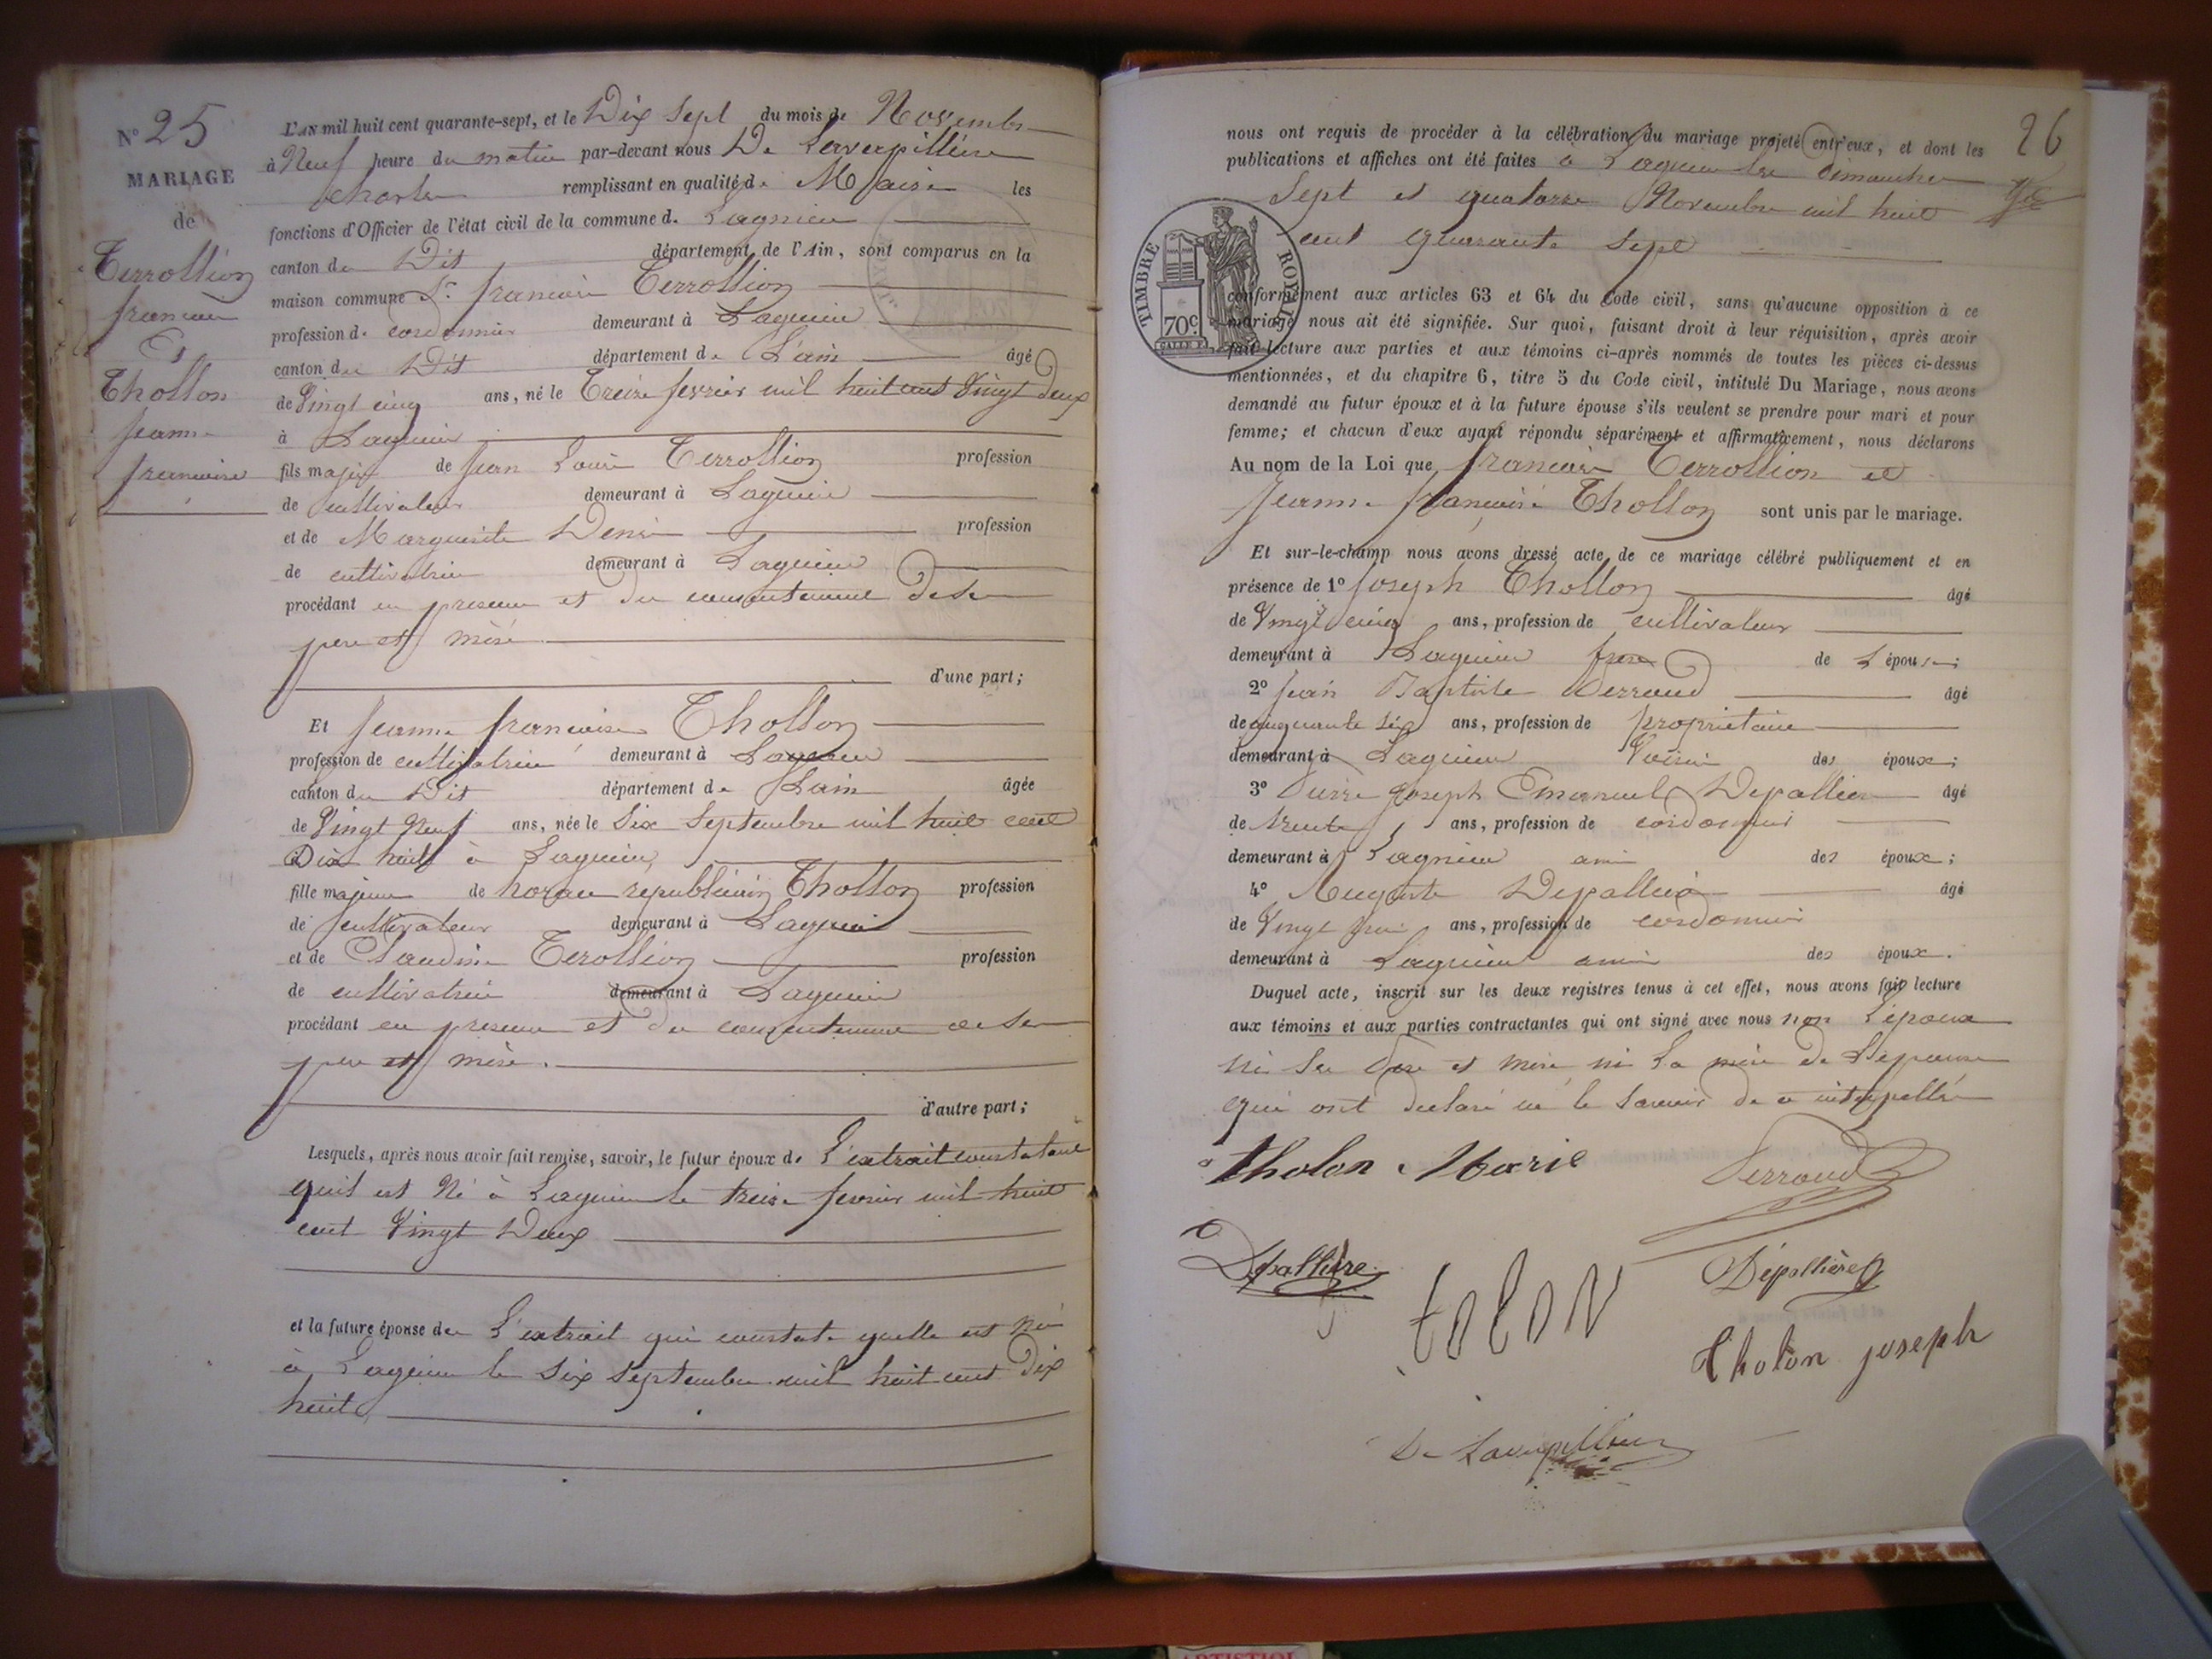 N° 25
MARIAGE
de
Terrollion
francois
Et
Thollon
jeanne
francoise
L'AN mil huit cent quarante-sept, et le Dix Sept du mois de Novembre
à Neuf heure du matin par-devant nous De Laverpilliere
Charles remplissant en qualité de Maire les
fonctions d'Officier de l'état civil de la commune de Lagnieu
canton du Dit département de l'Ain, sont comparus en la
maison commune Sr. francois Terrollion
profession de cordonnier demeurant à Lagnieu
canton du Dit département de L'ain âgé
de Vingt cinq ans, né le Treize fevrier mil huit cent Vingt deux
à Lagnieu
fils majeur de jean Louis Terrollion profession
de cultivateur demeurant à Lagnieu
et de Marguerite Denis profession
de cultivatrice demeurant à Lagnieu
procédant en presence et du consentement de ses
pere et mère
d'une part;
Et jeanne francoise Thollon
profession de cultivatrice demeurant à Lagnieu
canton du Dit département de L'ain âgée
de Vingt Neuf ans, née le Six Septembre mil huit cent
Dix huit à Lagnieu
fille majeure de horace republicain Thollon profession
de cultivateur demeurant à Lagnieu
et de Claudine Terollion profession
de cultivatrice demeurant à Lagnieu
procédant en presence et du consentement de ses
pere et mère.
d'autre part;
Lesquels, après nous avoir fait remise, savoir, le futur époux de L'extrait constatant
quil est Né à Lagnieu le treize fevrier mil huit
cent Vingt Deux
et la future épouse de L'extrait qui constate quelle est née
à Lagnieu le six septembre mil huit cent Dix
huit
26
nous ont requis de procéder à la célébration du mariage projeté entr'eux, et dont les
publications et affiches ont été faites à Lagnieu les dimanches
Sept et quatorze Novembre mil huit
cent quarante sept
TIMBRE ROYAL
70c
conformément aux articles 63 et 64 du Code civil, sans qu'aucune opposition à ce
mariage nous ait été signifiée. Sur quoi, faisant droit à leur réquisition, après avoir
fait lecture aux parties et aux témoins ci-après nommés de toutes les pièces ci-dessus
mentionnées, et du chapitre 6, titre 5 du Code civil, intitulé Du Mariage, nous avons
demandé au futur époux et à la future épouse s'ils veulent se prendre pour mari et pour
femme; et chacun d'eux ayant répondu séparément et affirmativement, nous déclarons
Au nom de la Loi que francois Terrollion et
jeanne francoise Thollon sont unis par le mariage.
Et sur-le-champ nous avons dressé acte de ce mariage célébré publiquement et en
présence de 1° joseph Thollon âgé
de Vingt cinq ans, profession de cultivateur
demeurant à Lagnieu frere de L'épouse;
2° jean Baptiste Perraud âgé
de cinquante six ans, profession de propriétaire
demeurant à Lagnieu Voisin des époux;
3° Pierre joseph Emanuel Depallier âgé
de trente ans, profession de cordonnier
demeurant à Lagnieu ami des époux;
4° Auguste Depallier âgé
de Vingt ans, profession de cordonnier
demeurant à Lagnieu ami des époux.
Duquel acte, inscrit sur les deux registres tenus à cet effet, nous avons fait lecture
aux témoins et aux parties contractantes qui ont signé avec nous non L'époux
ni ses père et mère ni La mère de L'épouse
qui ont déclaré ne le savoir de ce interpellés
tholon Marie
Perraud
Depalliere
tolon
Dépallière
tholon joseph
De Laverpilliere